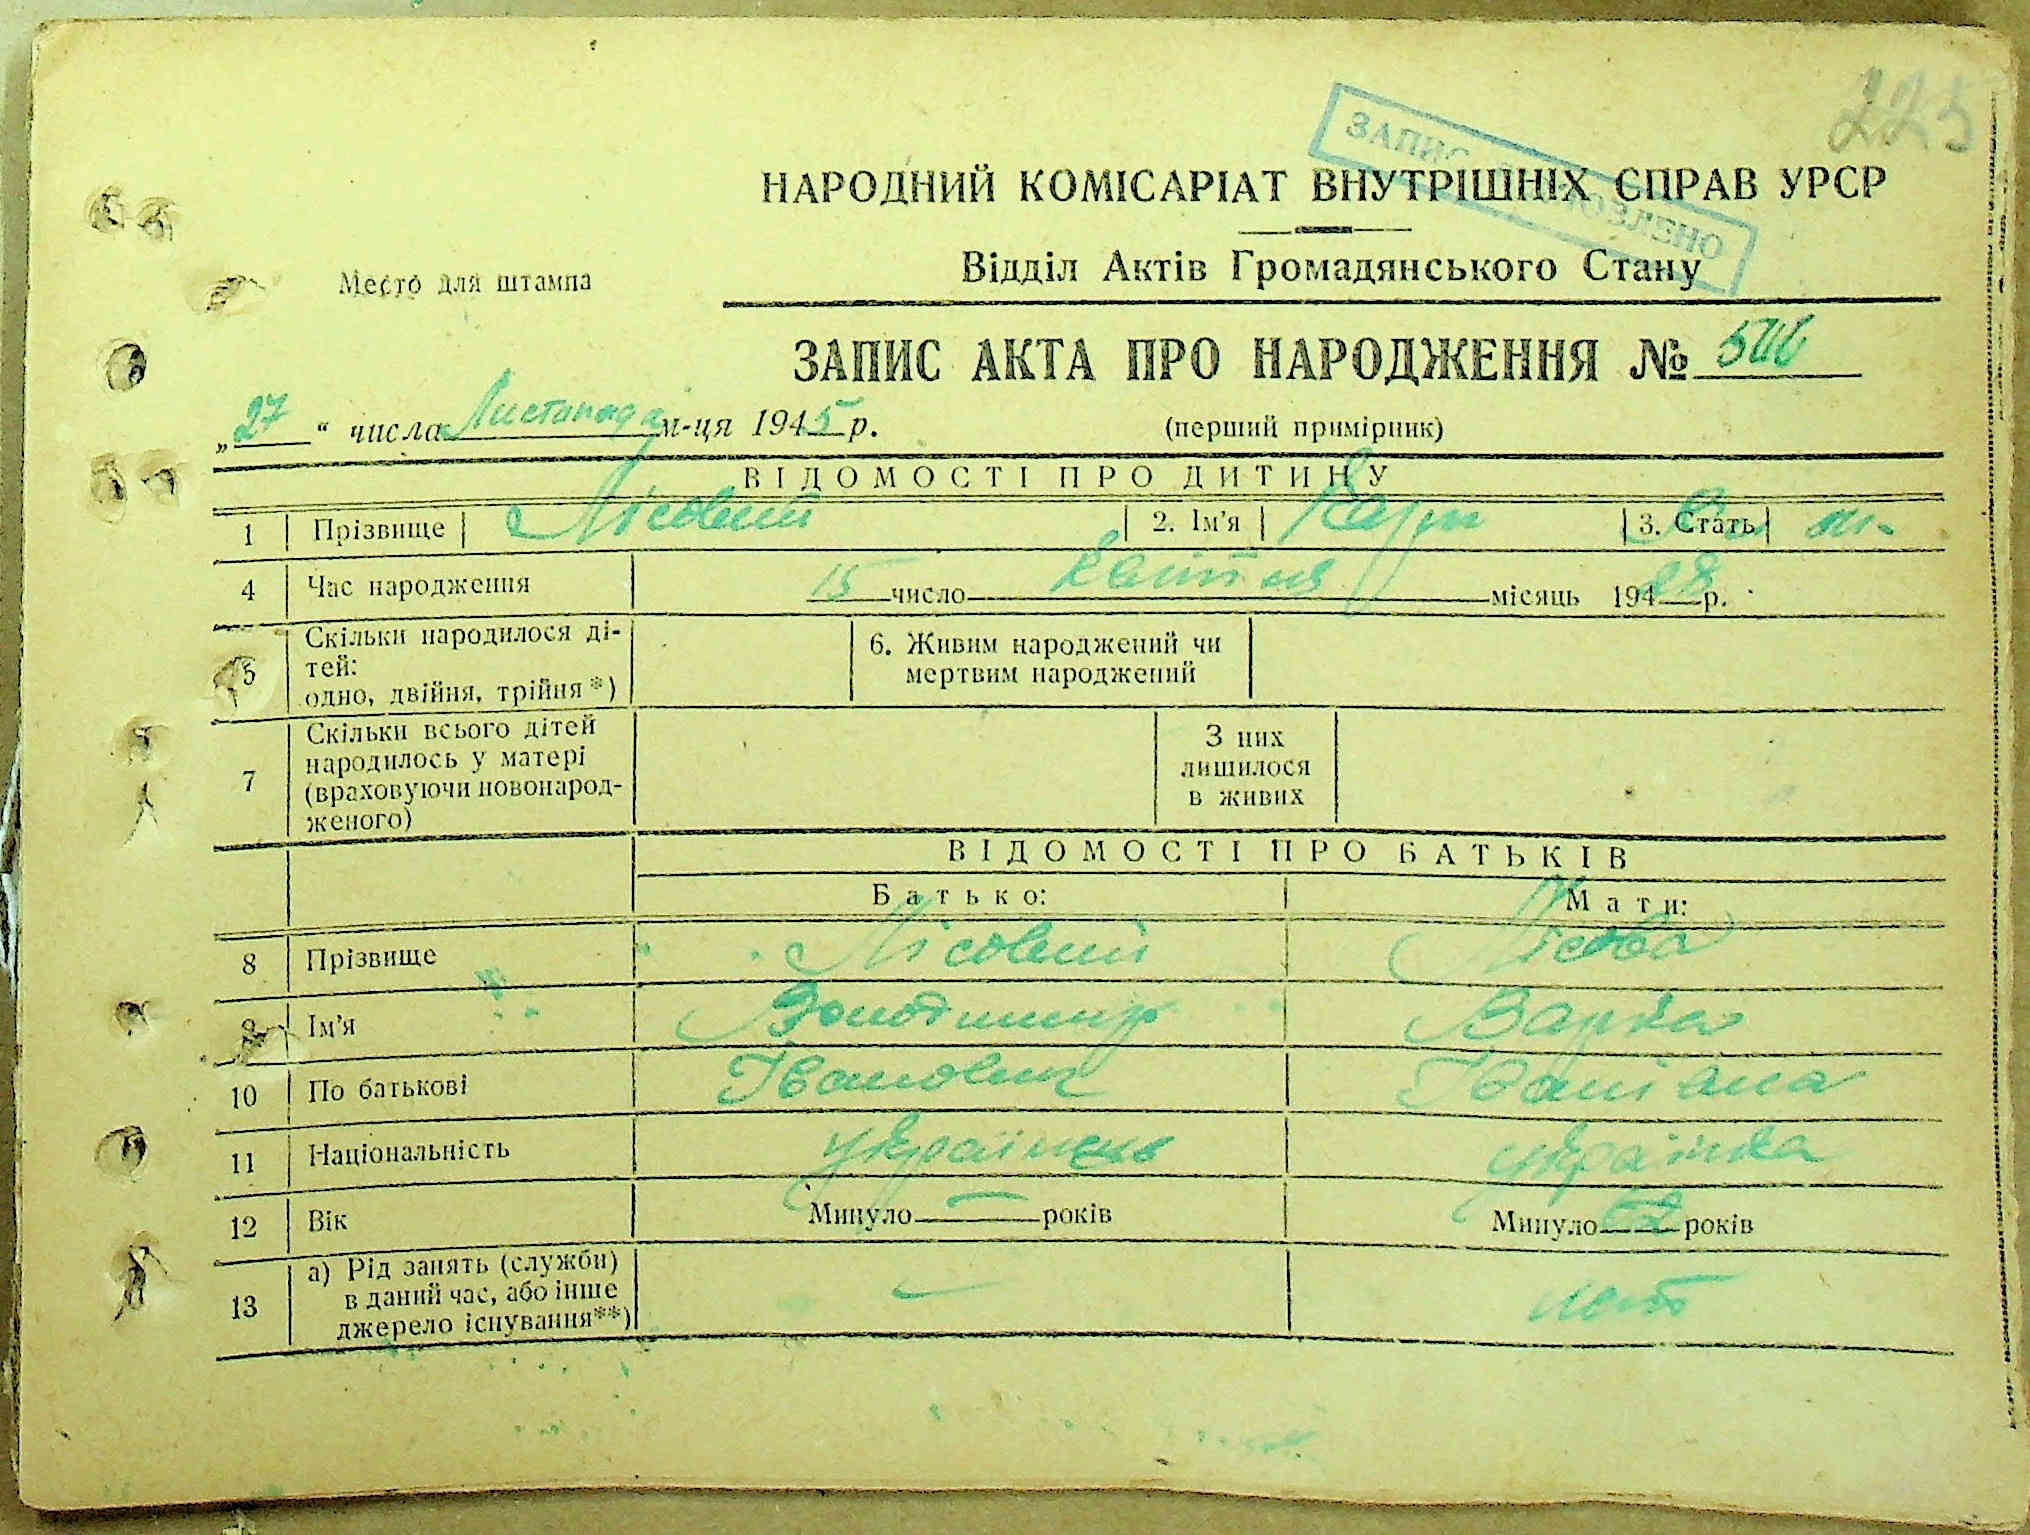 225
ЗАПИС ВІДНОВЛЕНО
НАРОДНИЙ КОМІСАРІАТ ВНУТРІШНІХ СПРАВ УРСР
Место для штампа
Відділ Актів Громадянського Стану
ЗАПИС АКТА ПРО НАРОДЖЕННЯ №
„27“ числа Листопада м-ця 1945 р. (перший примірник)
ВІДОМОСТІ ПРО ДИТИНУ
1 Прізвище Лісовий 2. Ім'я 3. Стать
4 Час народження 15 число квітня місяць 194 р.
5 Скільки народилося ді-
тей:
одно, двійня, трійня*)
6. Живим народжений чи
мертвим народжений
7 Скільки всього дітей
народилось у матері
(враховуючи новонарод-
женого)
З них
лишилося
в живих
ВІДОМОСТІ ПРО БАТЬКІВ
Батько: Мати:
8 Прізвище Лісовий Лісова
9 Ім'я Володимир Варка
10 По батькові Іванович Іванівна
11 Національність українець українка
12 Вік Минуло — років Минуло років
13 а) Рід занять (служби)
в даний час, або інше
джерело існування**)